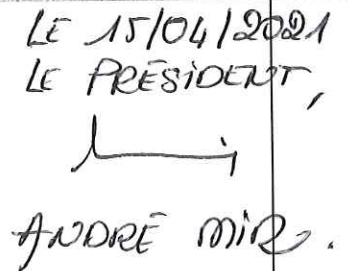 LE 15/04/2021
LE PRÉSIDENT,
ANDRÉ MIR.